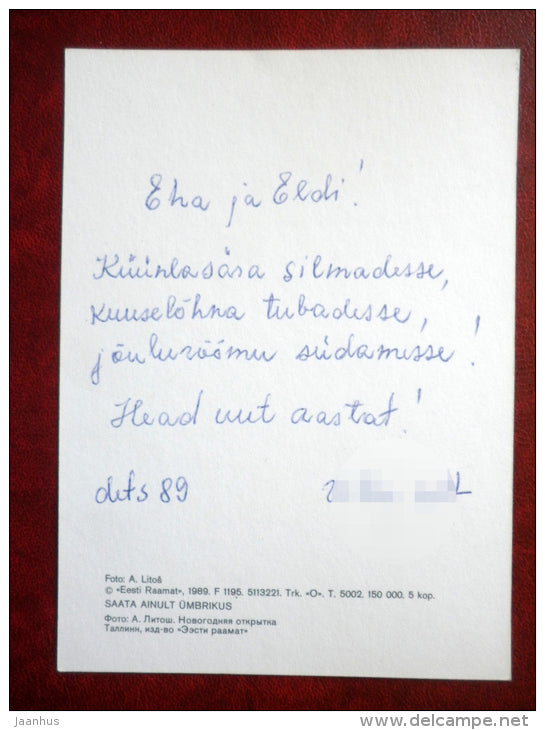 Eha ja Eldi!
Küünlasära silmadesse,
kuuselõhna tubadesse,
jõulurõõmu südamesse!
Head uut aastat!
dets 89
Foto: A. Litoš
© «Eesti Raamat», 1989. F 1195. 5113221. Trk. «O». T. 5002. 150 000. 5 kop.
SAATA AINULT ÜMBRIKUS
Фото: А. Литош. Новогодняя открытка
Таллинн, изд-во «Ээсти раамат»
jaanhus
www.delcampe.net